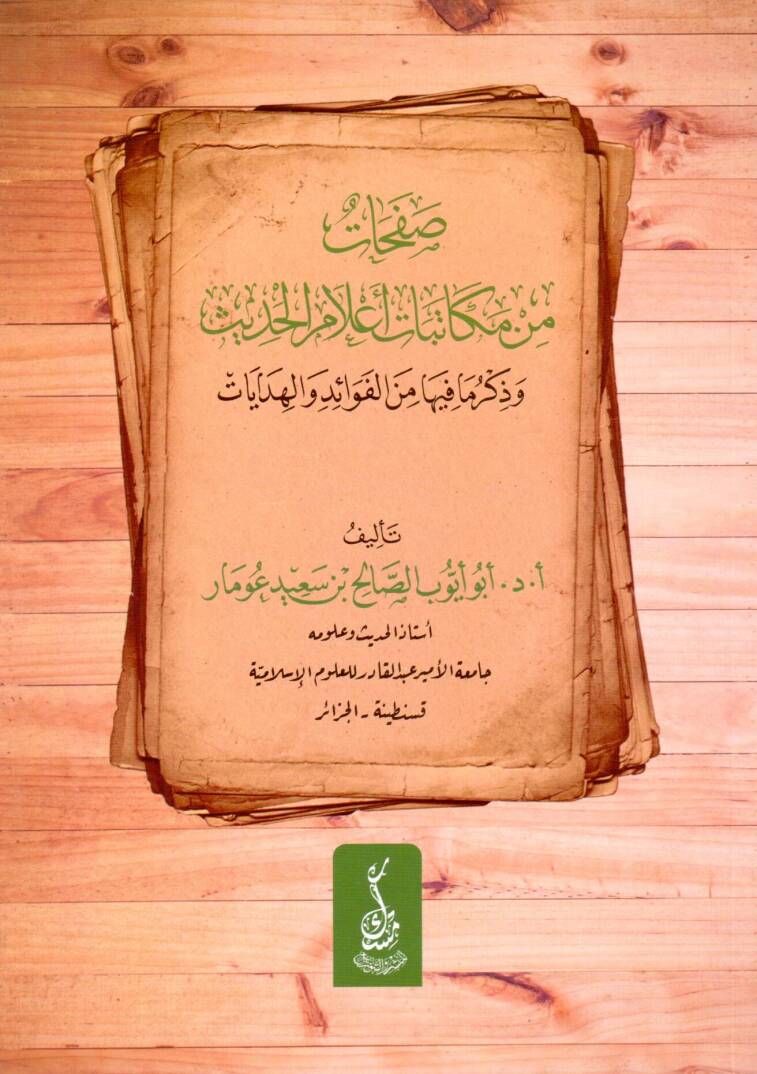 صَفَحَاتٌ
مِنْ مَكَاتَبَات أَعْلَامِ الحَدِيثِ
وَذِكْرُ مَا فِيهَا مِنَ الفَوَائِدِ وَالهِدَايَات
تَأليفُ
أ.د. أَبُو أَيُّوب الصَّالِح بْن سَعِيد عُومَار
أستاذ الحديث وعلومه
جامعة الأمير عبد القادر للعلوم الإسلاميّة
قسنطينة - الجزائر
مسك
للنشر والتوزيع